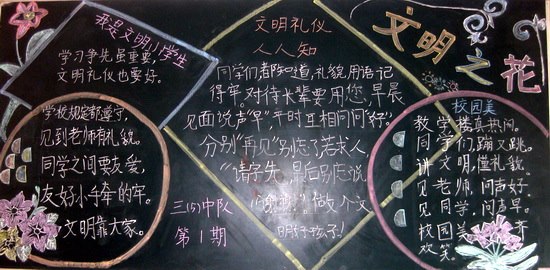 我是文明小学生
学习争先虽重要,
文明礼仪也要好。
学校规定都遵守,
见到老师有礼貌。
同学之间要友爱,
友好小手牵的牢。
文明靠大家。
文明礼仪
人人知
同学们都知道,礼貌用语记
得牢。对待长辈要用您,早晨
见面说声“早”,平时互相问“问好”。
分别“再见”别忘了,若求人
“请”字先,最后别忘说
“谢谢”。做个文
明好孩子!
三(5)中队
第1期
文明之花
校园美
教学楼真热闹。
同学们,蹦又跳。
讲文明,懂礼貌。
见老师,问声好。
见同学,问声早。
校园美 齐
欢笑。